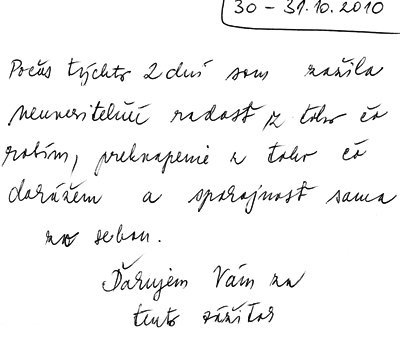 30 - 31.10.2010
Počas týchto 2 dní som zažila
neuveriteľnú radosť z toho čo
robím, prekvapenie z toho čo
dokážem a spokojnosť sama
zo sebou.
Ďakujem Vám za
tento zážitok